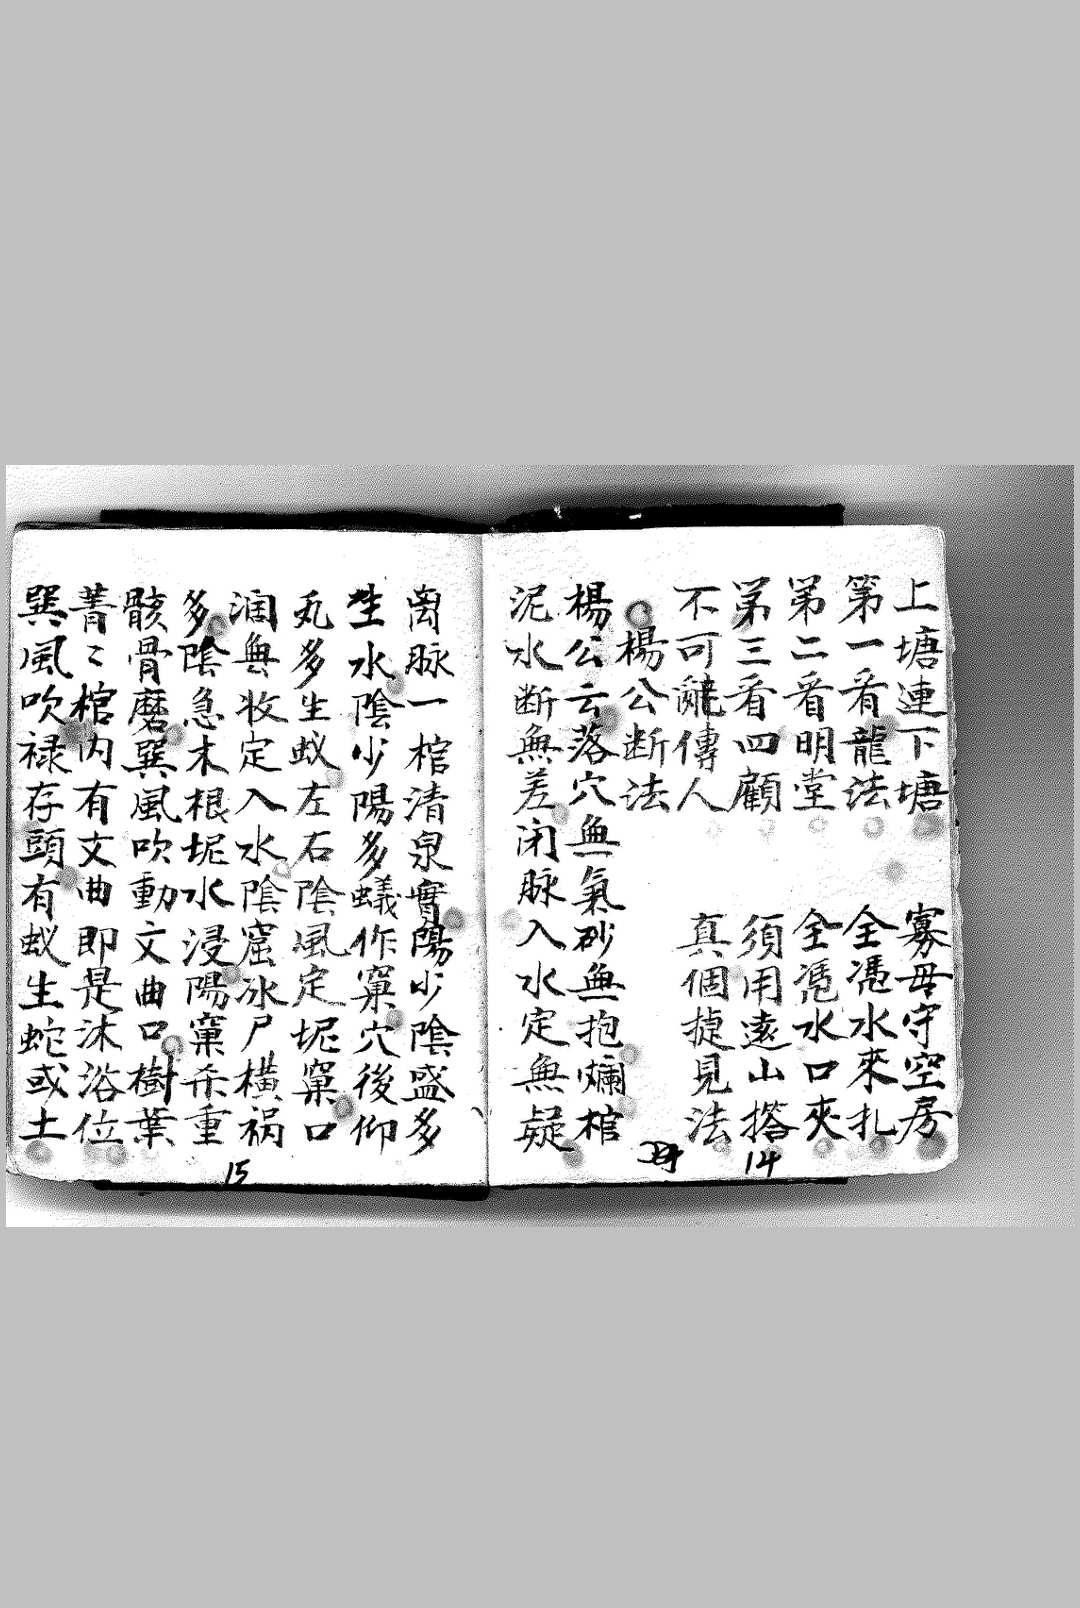 上塘連下塘 寡母守空房
第一看龍法 全憑水來扎
第二看明堂 全憑水口夾
第三看四顧 須用遠山搭
不可亂傳人 真個揵見法
楊公断法
楊公云落穴無氣砂無抱爛棺
泥水断無差闭脉入水定無疑
14
离脉一棺清泉實陽少陰盛多
生水陰少陽多蟻作窠穴後仰
丸多生蚁左右陰風定坭窠口
润無收定入水陰窟冰尸橫祸
多陰急木根坭水浸陽窠乔重
骸骨磨巽風吹動文曲口樹葉
菁〻棺内有文曲即是沐浴位
巽風吹禄存頭有蚁生蛇或土
15